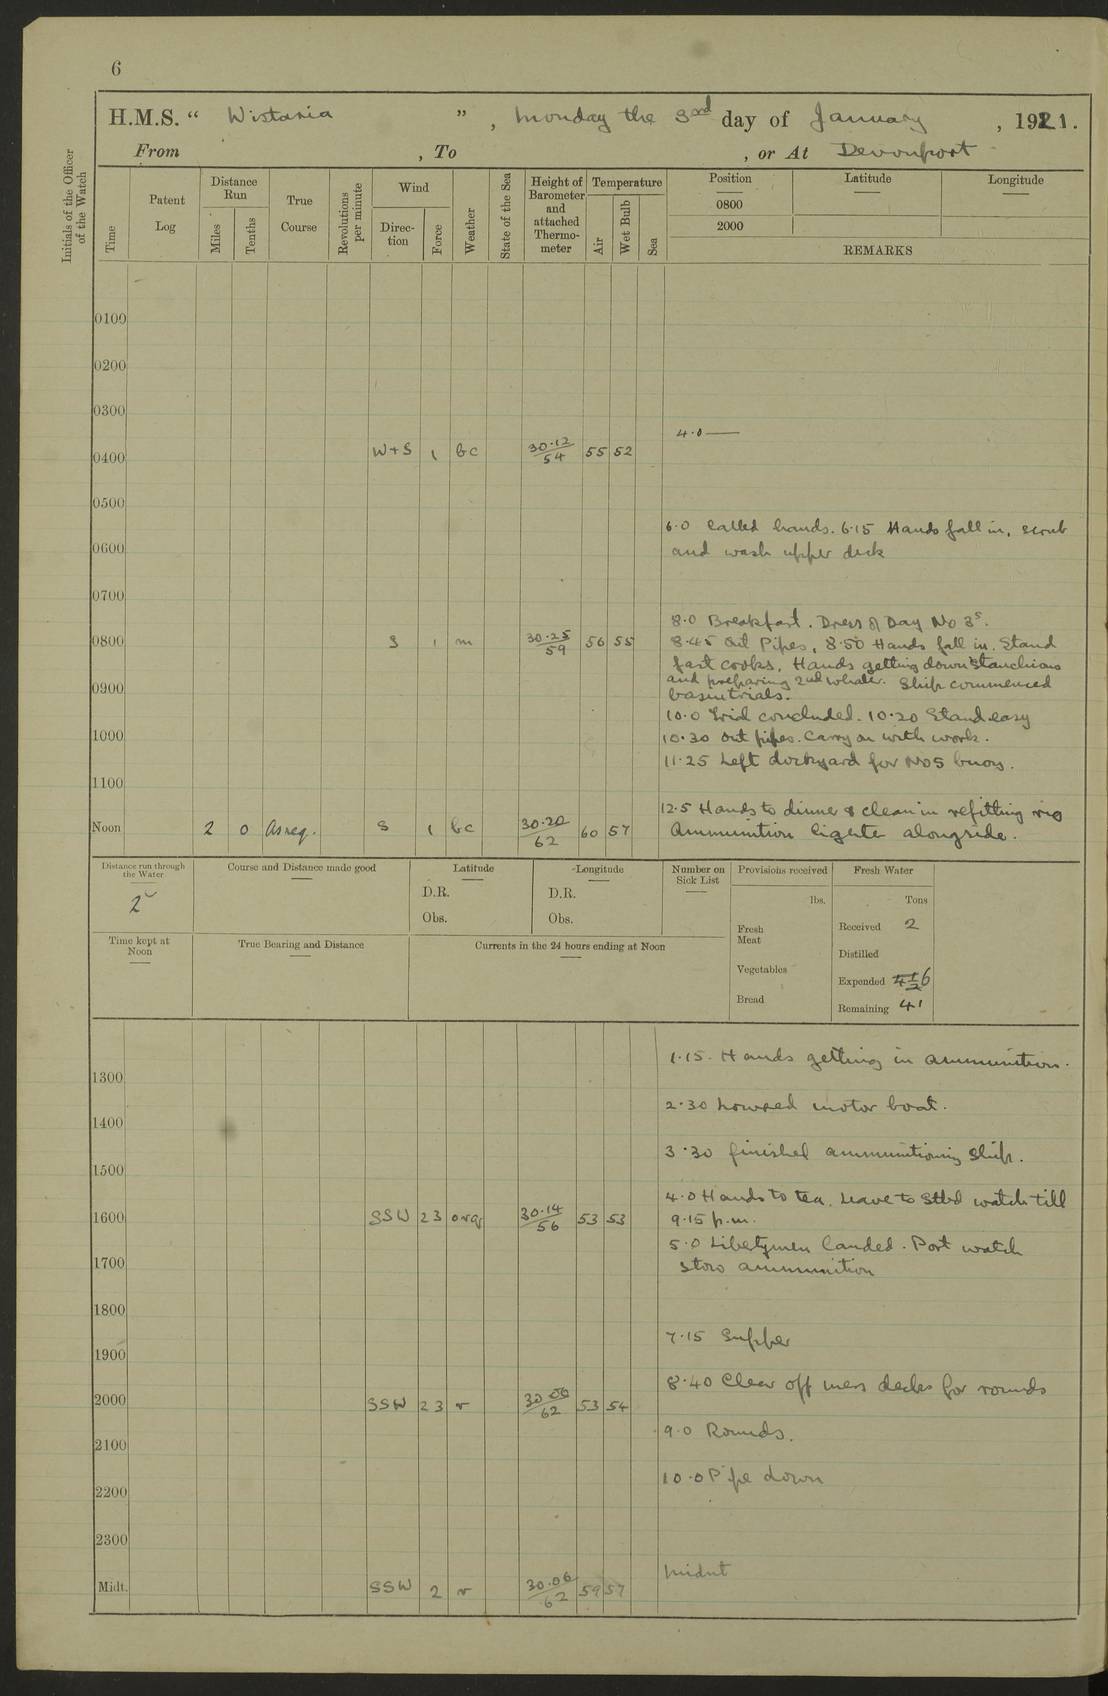 6
H.M.S. “ Wistaria ” , Monday the 3rd day of January , 1921.
From , To , or At Devonport
Initials of the Officer of the Watch
Time
Patent Log
Distance Run
Miles
Tenths
True Course
Revolutions per minute
Wind
Direction
Force
Weather
State of the Sea
Height of Barometer and attached Thermometer
Temperature
Air
Wet Bulb
Sea
Position
Latitude
Longitude
0800
2000
REMARKS
0100
0200
0300
4.0 —
0400 W+S 1 bc 30.12/54 55 52
0500
6.0 Called hands. 6.15 Hands fall in, scrub
0600 and wash upper deck
0700
8.0 Breakfast. Dress of Day No 3s.
0800 S 1 m 30.25/59 56 55 8.45 Out Pipes, 8.50 Hands fall in. Stand
fast cooks, Hands getting down stanchions
0900 and preparing 2nd whaler. Ship commenced
basin trials.
10.0 Trial concluded. 10.20 Stand easy
1000 10.30 Out pipes. Carry on with work.
11.25 Left dockyard for No 5 buoy.
1100
12.5 Hands to dinner & clean in refitting rig
Noon 2 0 As req. S 1 bc 30.20/62 60 57 Ammunition lighter alongside.
Distance run through the Water
2
Course and Distance made good
Latitude
D.R.
Obs.
Longitude
D.R.
Obs.
Number on Sick List
Provisions received
lbs.
Fresh Meat
Vegetables
Bread
Fresh Water
Tons
Received 2
Distilled
Expended 6
Remaining 41
Time kept at Noon
True Bearing and Distance
Currents in the 24 hours ending at Noon
1.15. Hands getting in ammunition.
1300
2.30 Lowered motor boat.
1400
3.30 finished ammunitioning ship.
1500
4.0 Hands to tea. Leave to Stbd watch till
1600 SSW 23 orq 30.14/56 53 53 9.15 p.m.
5.0 Libertymen landed. Port watch
1700 stow ammunition
1800
7.15 Supper
1900
8.40 Clear off mess decks for rounds
2000 SSW 23 r 30 /62 53 54
9.0 Rounds.
2100
10.0 Pipe down
2200
2300
Midnt
Midt. SSW 2 r 30.06/62 59 57